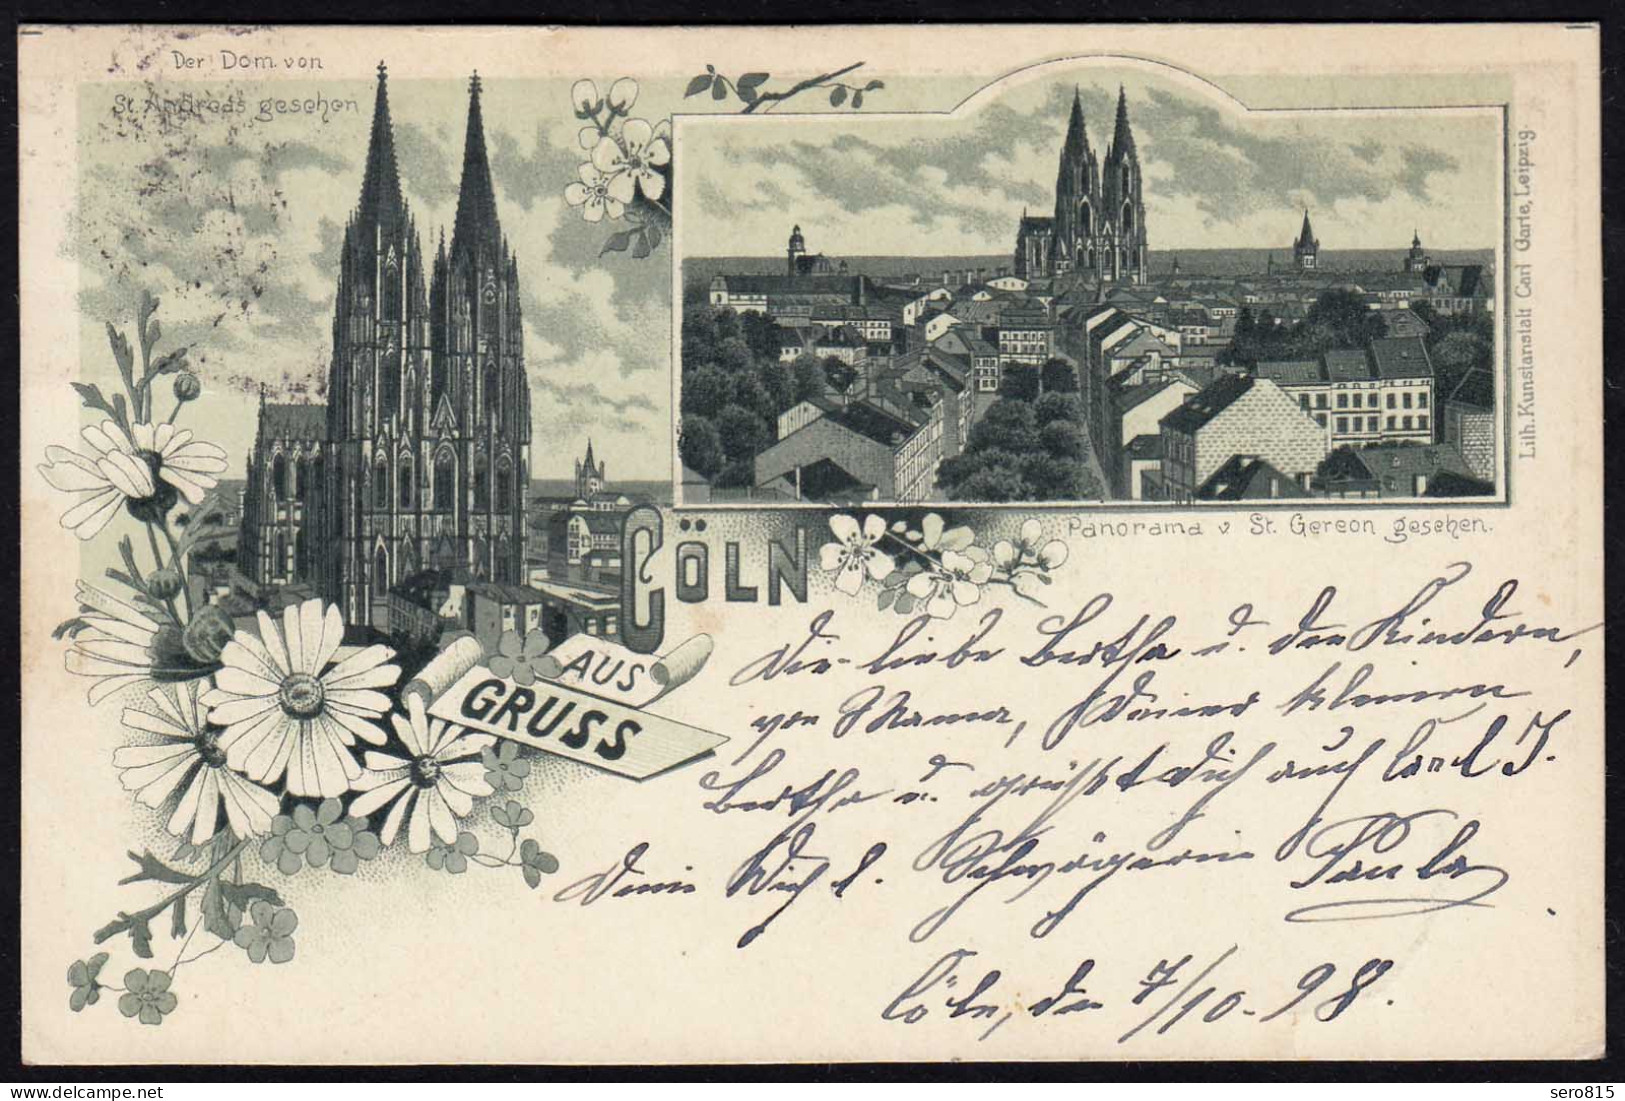 Der Dom von
St. Andreas gesehen
CÖLN
AUS
GRUSS
Panorama v St. Gereon gesehen.
Lith. Kunstanstalt Carl Garte, Leipzig.
Die liebe Bertha u. den Kindern,
von Mama, Deiner kleinen
Bertha u. grüßt Dich auch Carl J.
Deine Dich l. Schwägerin Paula
Cöln, den 7/10. 98.
sero815